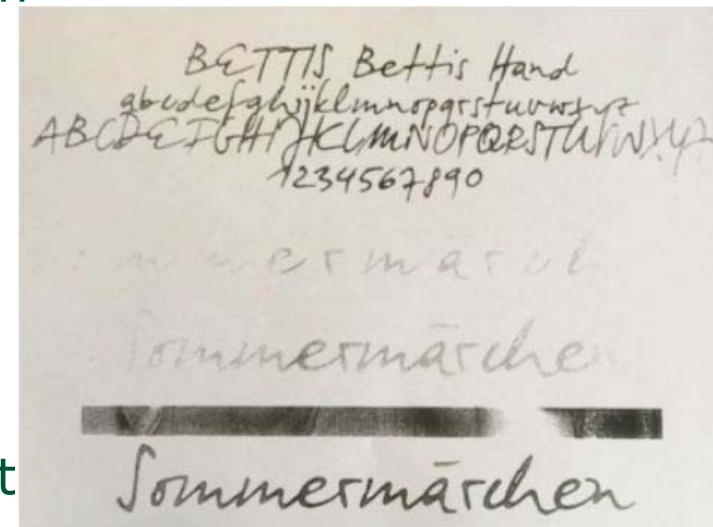 BETTIS Bettis Hand
abcdefghijklmnopqrstuvwxyz
ABCDEFGHIJKLMNOPQRSTUVWXYZ
1234567890
Sommermärchen
Sommermärchen